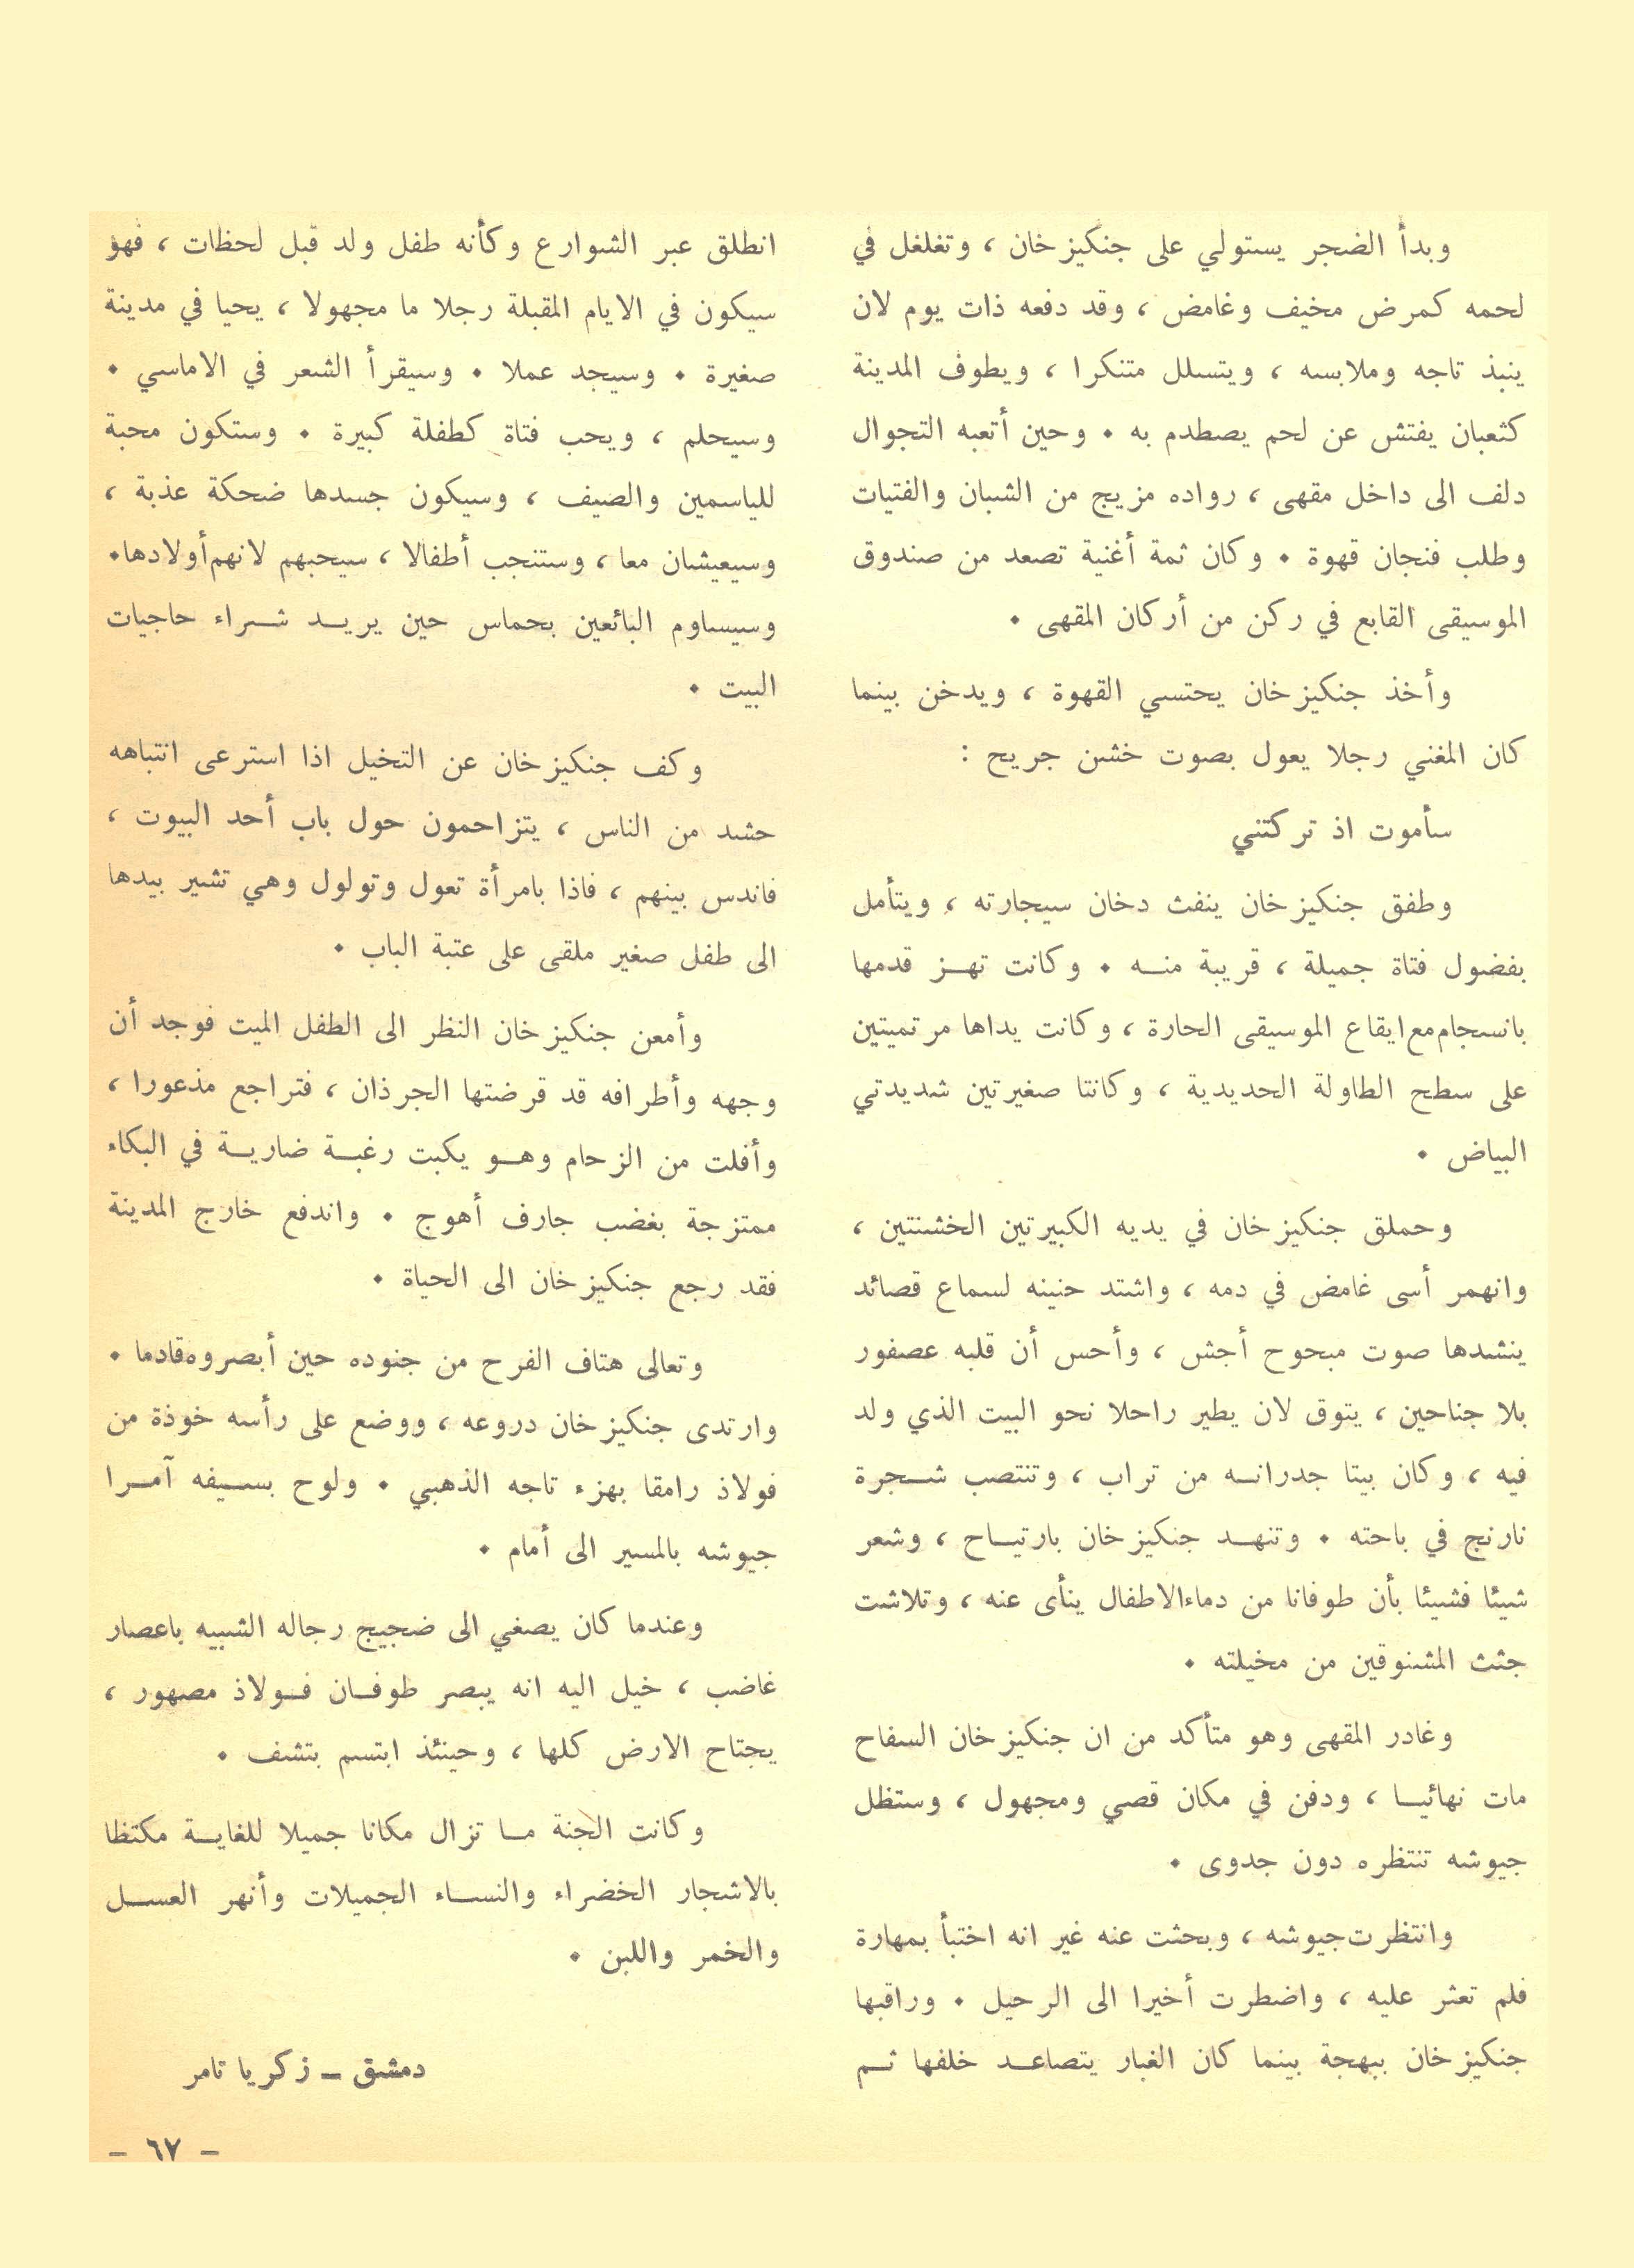 وبدأ الضجر يستولي على جنكيزخان ، وتغلغل في
لحمه كمرض مخيف وغامض ، وقد دفعه ذات يوم لان
ينبذ تاجه وملابسه ، ويتسلل متنكرا ، ويطوف المدينة
كثعبان يفتش عن لحم يصطدم به . وحين أتعبه التجوال
دلف الى داخل مقهى ، رواده مزيج من الشبان والفتيات
وطلب فنجان قهوة . وكان ثمة أغنية تصعد من صندوق
الموسيقى القابع في ركن من أركان المقهى .
وأخذ جنكيزخان يحتسي القهوة ، ويدخن بينما
كان المغني رجلا يعول بصوت خشن جريح :
سأموت اذ تركتني
وطفق جنكيزخان ينفث دخان سيجارته ، ويتأمل
بفضول فتاة جميلة ، قريبة منه . وكانت تهز قدمها
بانسجام مع ايقاع الموسيقى الحارة ، وكانت يداها مرتميتين
على سطح الطاولة الحديدية ، وكانتا صغيرتين شديدتي
البياض .
وحملق جنكيزخان في يديه الكبيرتين الخشنتين ،
وانهمر أسى غامض في دمه ، واشتد حنينه لسماع قصائد
ينشدها صوت مبحوح أجش ، وأحس أن قلبه عصفور
بلا جناحين ، يتوق لان يطير راحلا نحو البيت الذي ولد
فيه ، وكان بيتا جدرانه من تراب ، وتنتصب شجرة
نارنج في باحته . وتنهد جنكيزخان بارتياح ، وشعر
شيئا فشيئا بأن طوفانا من دماء الاطفال ينأى عنه ، وتلاشت
جثث المشنوقين من مخيلته .
وغادر المقهى وهو متأكد من ان جنكيزخان السفاح
مات نهائيا ، ودفن في مكان قصي ومجهول ، وستظل
جيوشه تنتظره دون جدوى .
وانتظرت جيوشه ، وبحثت عنه غير انه اختبأ بمهارة
فلم تعثر عليه ، واضطرت أخيرا الى الرحيل . وراقبها
جنكيزخان ببهجة بينما كان الغبار يتصاعد خلفها ثم
انطلق عبر الشوارع وكأنه طفل ولد قبل لحظات ، فهو
سيكون في الايام المقبلة رجلا ما مجهولا ، يحيا في مدينة
صغيرة . وسيجد عملا . وسيقرأ الشعر في الاماسي .
وسيحلم ، ويحب فتاة كطفلة كبيرة . وستكون محبة
للياسمين والصيف ، وسيكون جسدها ضحكة عذبة ،
وسيعيشان معا ، وستنجب أطفالا ، سيحبهم لانهم أولادها .
وسيساوم البائعين بحماس حين يريد شراء حاجيات
البيت .
وكف جنكيزخان عن التخيل اذا استرعى انتباهه
حشد من الناس ، يتزاحمون حول باب أحد البيوت ،
فاندس بينهم ، فاذا بامرأة تعول وتولول وهي تشير بيدها
الى طفل صغير ملقى على عتبة الباب .
وأمعن جنكيزخان النظر الى الطفل الميت فوجد أن
وجهه وأطرافه قد قرضتها الجرذان ، فتراجع مذعورا ،
وأفلت من الزحام وهو يكبت رغبة ضارية في البكاء
ممتزجة بغضب جارف أهوج . واندفع خارج المدينة
فقد رجع جنكيزخان الى الحياة .
وتعالى هتاف الفرح من جنوده حين أبصروه قادما .
وارتدى جنكيزخان دروعه ، ووضع على رأسه خوذة من
فولاذ رامقا بهزء تاجه الذهبي . ولوح بسيفه آمرا
جيوشه بالمسير الى أمام .
وعندما كان يصغي الى ضجيج رجاله الشبيه باعصار
غاضب ، خيل اليه انه يبصر طوفان فولاذ مصهور ،
يجتاح الارض كلها ، وحينئذ ابتسم بتشف .
وكانت الجنة ما تزال مكانا جميلا للغاية مكتظا
بالاشجار الخضراء والنساء الجميلات وأنهر العسل
والخمر واللبن .
دمشق – زكريا تامر
– ٦٧ –